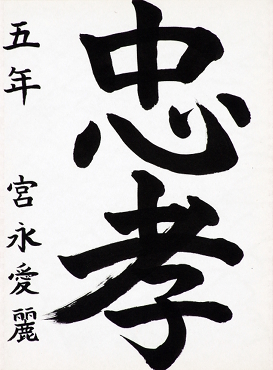 忠孝
五年 宮永愛麗